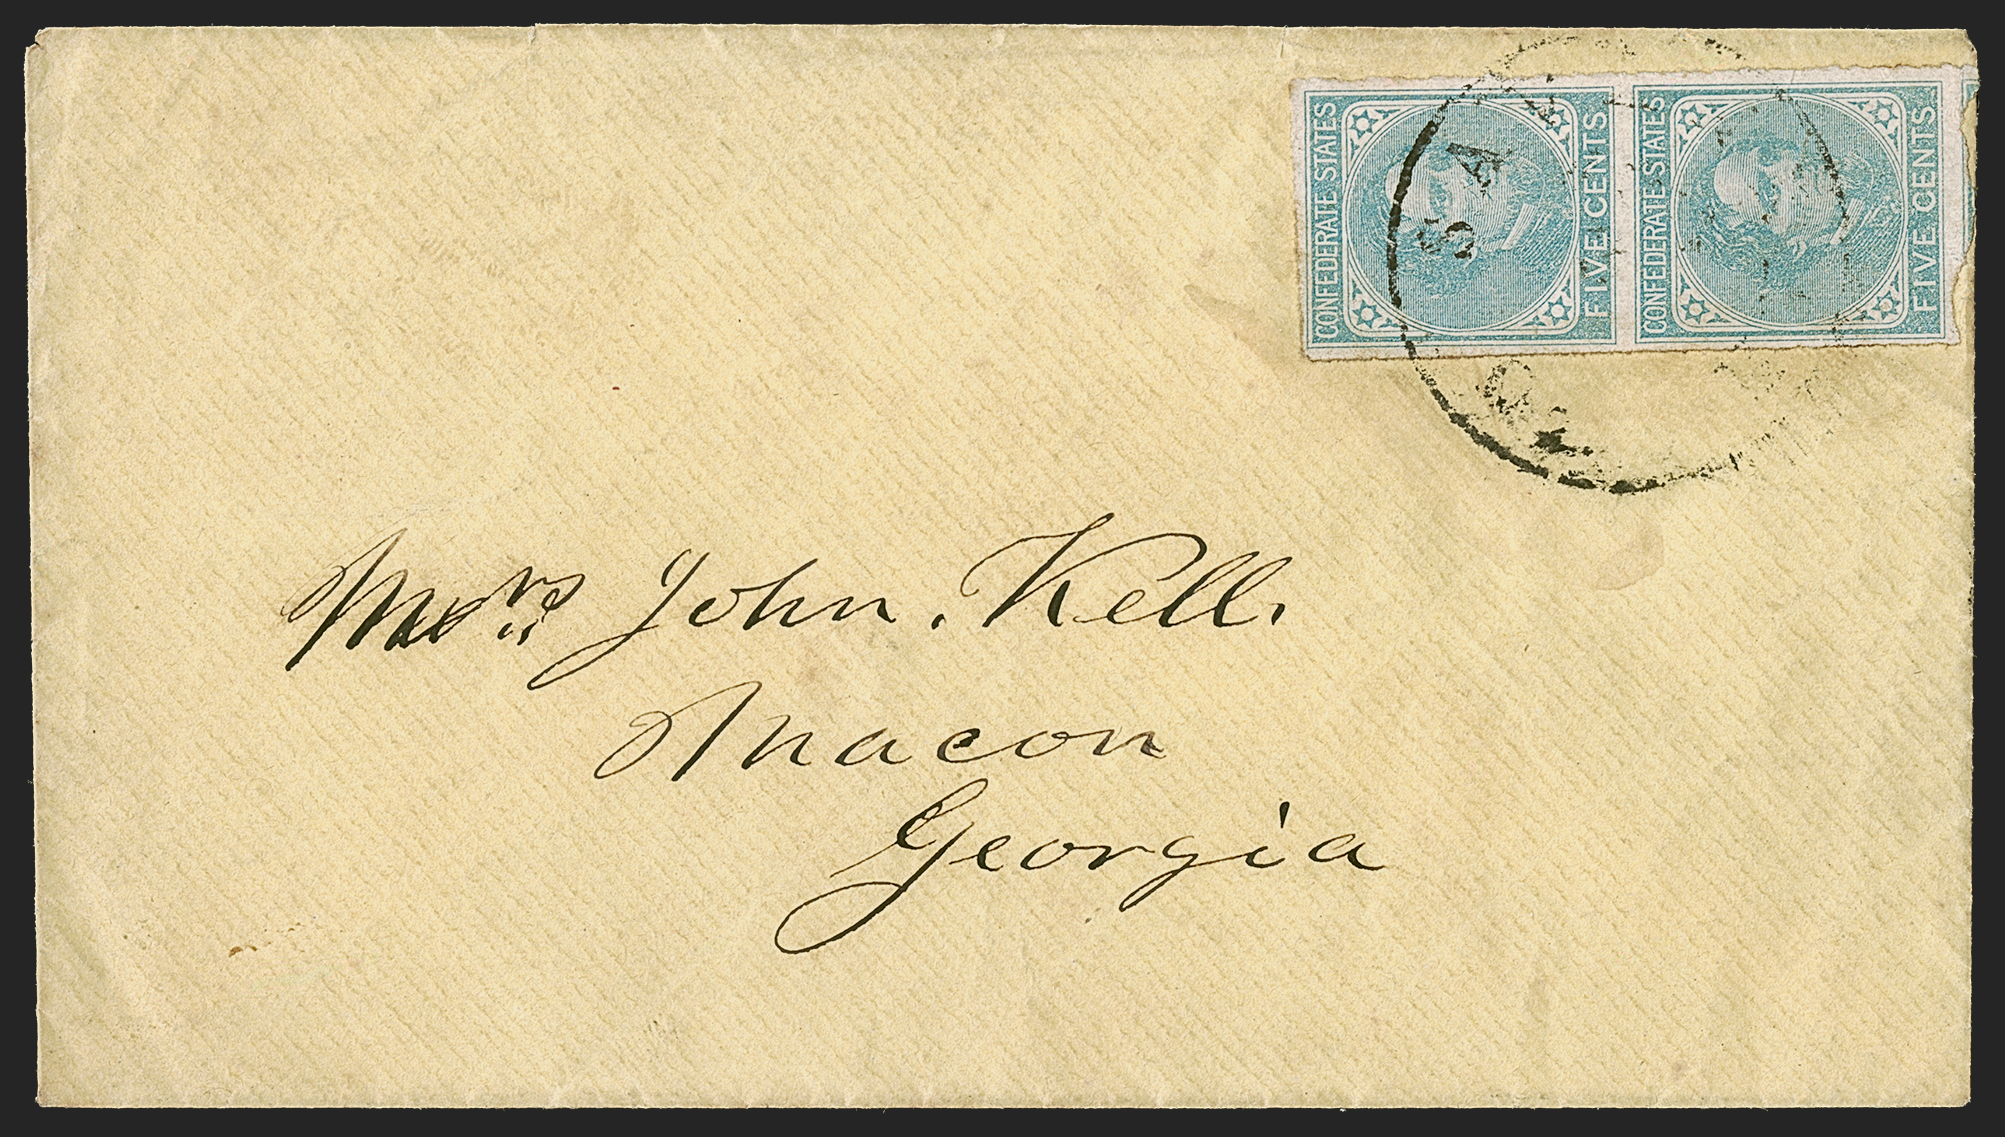 CONFEDERATE STATES
FIVE CENTS
CONFEDERATE STATES
FIVE CENTS
SAV
Mrs John. Kell.
Macon
Georgia